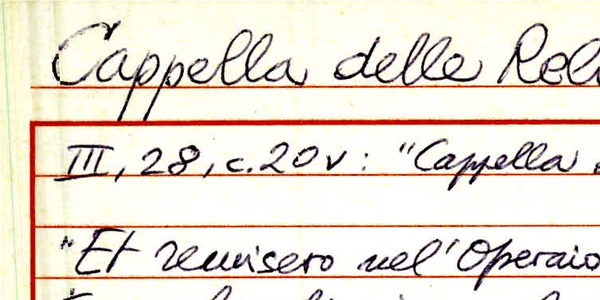 Cappella delle Reli
III, 28, c. 20v: "Cappella
"Et remisero nel' Operaio